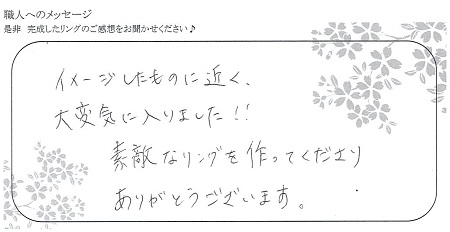 職人へのメッセージ
是非 完成したリングのご感想をお聞かせください♪
イメージしたものに近く、
大変気に入りました!!
素敵なリングを作ってくださり
ありがとうございます。